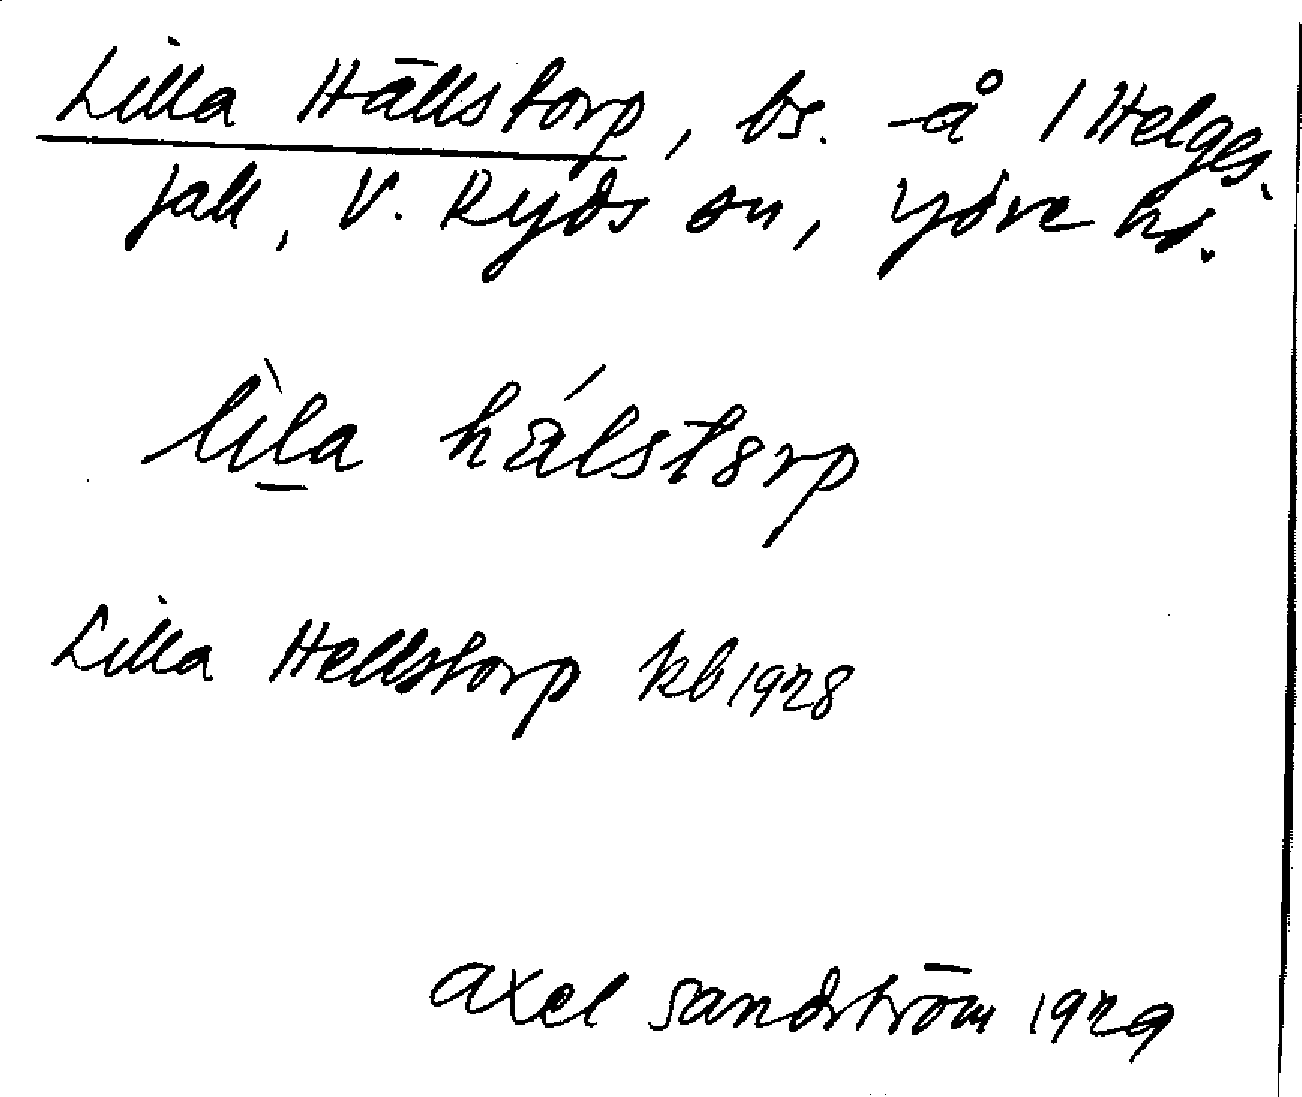 Lilla Hällstorp, bs. å 1 Helges-
fall, V. Ryds sn, Ydre hd.
lìla hálstorp
Lilla Hellstorp kb 1928
Axel Sandström 1929